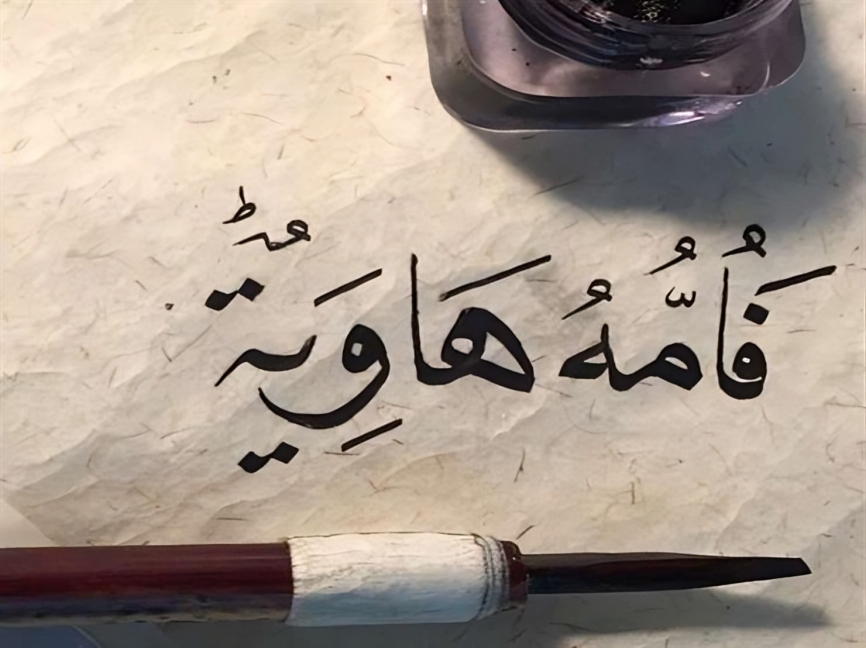 فَاُمُّهُ هَاوِيَةٌؕ